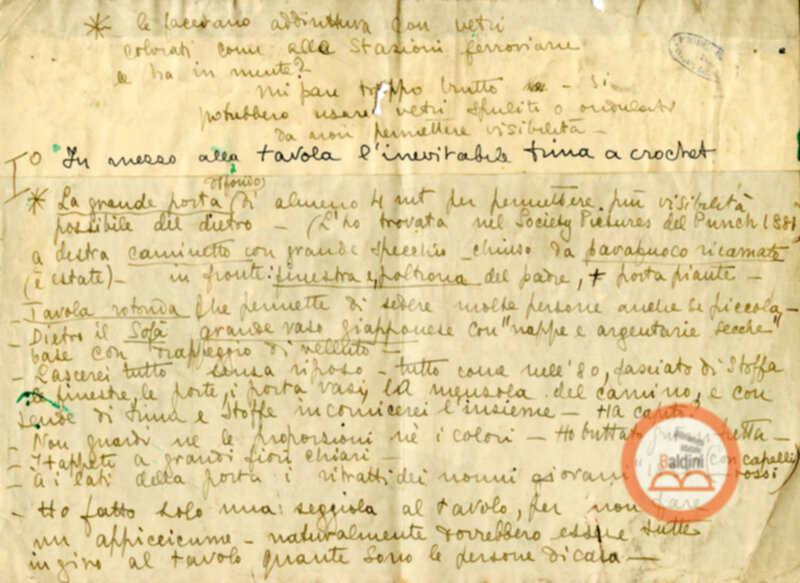 * le facevano addirittura con vetri
colorati come alle Stazioni ferroviarie
le ha in mente?
mi pare troppo brutto – Si
potrebbero usare vetri spuliti o ondulati
da non permettere visibilità –
I° In messo alla tavola l'inevitabile trina a crochet
(sfondo)
* La grande porta (di almeno 4 mt per permettere più visibilità
possibile del dietro – (L'ho trovata nel Society Pictures del Punch 1881
a destra caminetto con grande specchio – chiuso da parafuoco ricamato
(è estate) – in fronte: finestra e, poltrona del padre, + porta piante –
– Tavola rotonda (che permette di sedere molte persone anche se piccola –
– Dietro il Sofà grande vaso giapponese con "nappe e argentarie secche"
base con drappeggio di velluto –
– Lascerei tutto senza riposo – tutto come nell'80, fasciato di Stoffa
le finestre, le porte, i porta vasi, la mensola del camino, e con
tende di trina e Stoffe incornicerei l'insieme – Ha capito?
– Non guardi ne le proporzioni nè i colori – Ho buttato giù in fretta –
– I tappeti a grandi fiori chiari –
– Ai lati della porta i ritratti dei nonni giovani (con capelli
rossi)
– Ho fatto solo una seggiola al tavolo, per non fare
un appiccicume – naturalmente dovrebbero essere tutte
in giro al tavolo quante sono le persone di casa –
Baldini